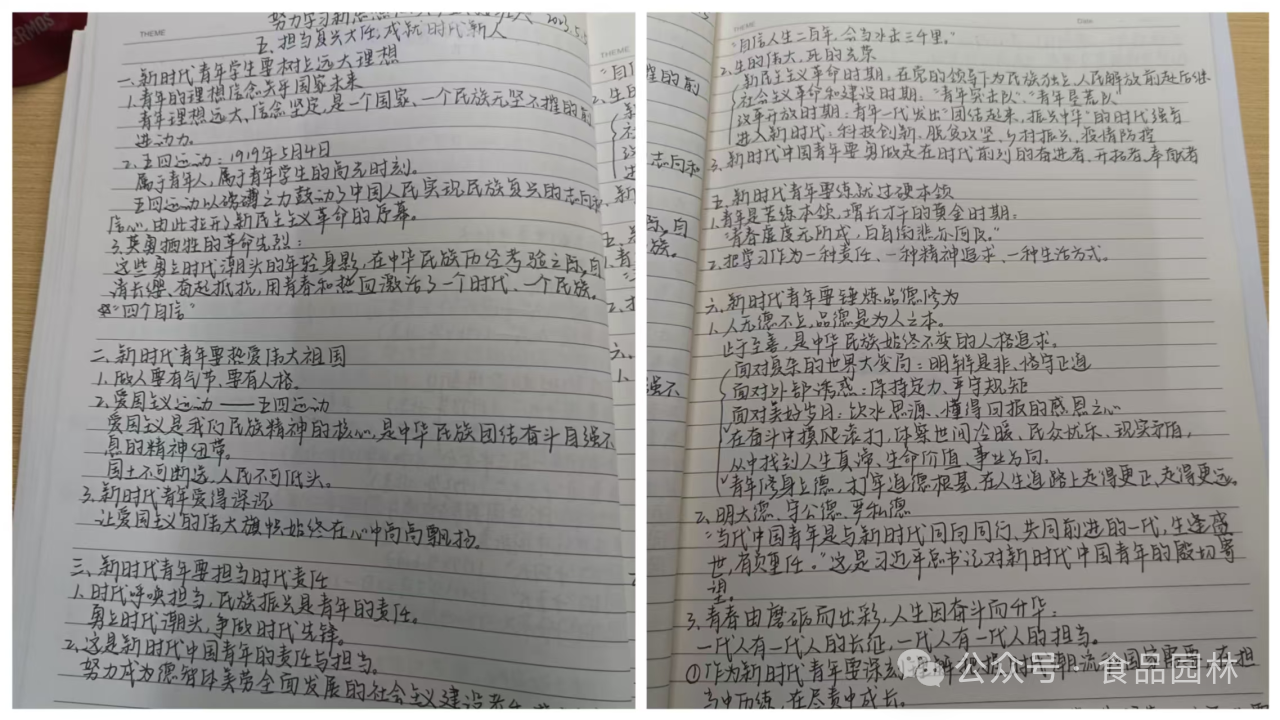 THERMOS
THEME
努力学习新思想 2023.5.
五、担当复兴大任,成就时代新人
一、新时代青年学生要树立远大理想
1.青年的理想信念关乎国家未来
青年理想远大、信念坚定,是一个国家、一个民族无坚不摧的前
进动力。
2.五四运动:1919年5月4日
属于青年人,属于青年学生的高光时刻。
五四运动以磅礴之力鼓动了中国人民实现民族复兴的志向和
信心,由此拉开新民主主义革命的序幕。
3.英勇牺牲的革命先烈:
这些勇立时代潮头的年轻身影,在中华民族历经考验之际,自
请长缨、奋起抵抗,用青春和热血激活了一个时代、一个民族。
☆"四个自信"
二、新时代青年要热爱伟大祖国
1.做人要有气节、要有人格。
2.爱国主义运动——五四运动
爱国主义是我们民族精神的核心,是中华民族团结奋斗自强不
息的精神纽带。
国土不可断送、人民不可低头。
3.新时代青年爱得深沉
让爱国主义的伟大旗帜始终在心中高高飘扬。
三、新时代青年要担当时代责任
1.时代呼唤担当,民族振兴是青年的责任。
勇立时代潮头,争做时代先锋。
2.这是新时代中国青年的责任与担当。
努力成为德智体美劳全面发展的社会主义建设者
THEME
Date
"自信人生二百年,会当水击三千里。"
2.生的伟大、死的光荣
新民主主义革命时期,在党的领导下为民族独立、人民解放前赴后继
社会主义革命和建设时期:"青年突击队""青年垦荒队
改革开放时期:青年一代发出"团结起来,振兴中华"的时代强音
进入新时代:科技创新、脱贫攻坚、乡村振兴、疫情防控
3.新时代中国青年要勇做走在时代前列的奋进者、开拓者、奉献者
五、新时代青年要练就过硬本领
1.青年是苦练本领、增长才干的黄金时期:
"青春虚度无所成,白首衔悲亦何及。"
2.把学习作为一种责任、一种精神追求、一种生活方式。
六、新时代青年要锤炼品德修为
1.人无德不立,品德是为人之本。
止于至善,是中华民族始终不变的人格追求。
面对复杂的世界大变局:明辨是非、恪守正道
面对外部诱惑:保持定力、严守规矩
面对美好岁月:饮水思源、懂得回报的感恩之心
在奋斗中摸爬滚打,体察世间冷暖、民众忧乐、现实矛盾,
从中找到人生真谛、生命价值、事业方向。
青年修身立德,打牢道德根基,在人生道路上走得更正、走得更远。
2.明大德、守公德、严私德
"当代中国青年是与新时代同向同行、共同前进的一代,生逢盛
世,肩负重任。"这是习近平总书记对新时代中国青年的殷切寄
望。
3.青春由磨砺而出彩,人生因奋斗而升华:
一代人有一代人的长征,一代人有一代人的担当。
①作为新时代青年要深刻
当中历练,在尽责中成长。
公众号·食品园林